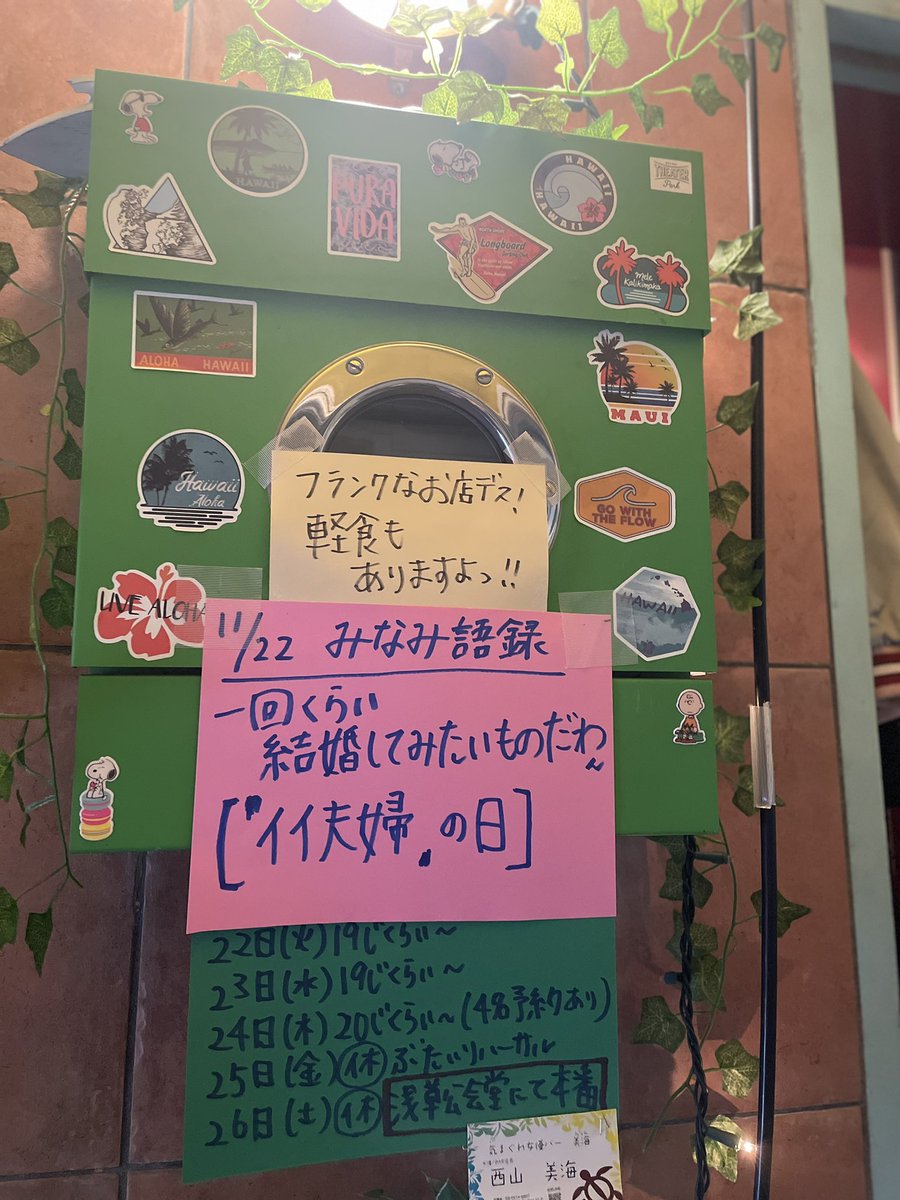 HAWAII
PURA
VIDA
HAWAII
HAWAII
THEATER
Park
NORTH SHORE
Longboard
Mele
Kalikimaka
ALOHA HAWAII
MAUI
Hawaii
Aloha
GO WITH
THE FLOW
LIVE ALOHA
HAWAII
フランクなお店デス!
軽食も
ありますよっ!!
11/22 みなみ語録
一回くらい
結婚してみたいものだわ~
["イイ夫婦"の日]
22日(火)19じくらい~
23日(水)19じくらい~
24日(木)20じくらい~(4名予約あり)
25日(金)休 ぶたいリハーサル
26日(土)休 浅草公会堂にて本番
気まぐれな優バー 美海
西山 美海